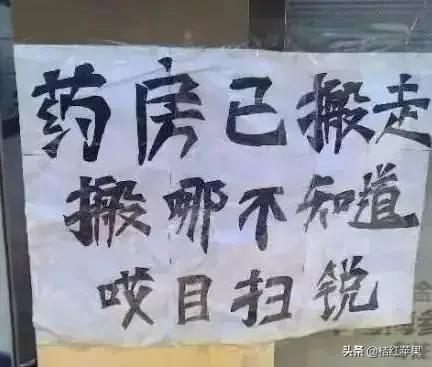 药房已搬走
搬哪不知道
哎目扫锐
头条 @桔红苹果